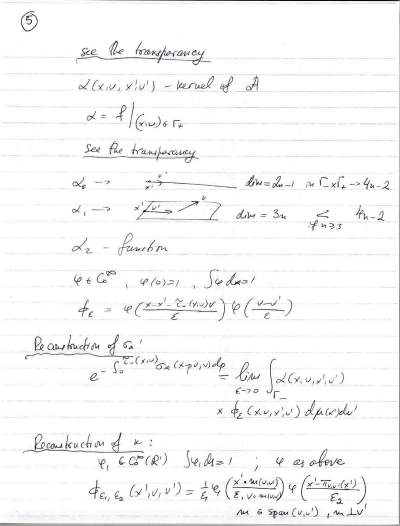 5
see the transparency
α(x,v,x',v') – kernel of A
α = f|(x,v)∈Γ₊
see the transparency
α₀ → x' v' dim = 2n-1 in Γ₋×Γ₊ → 4n-2
α₁ → x' v' v dim = 3n < 4n-2
if n≥3
α₂ – function
φ ∈ C₀^∞, φ(0)=1, ∫φdx=1
ϕ_ε = φ((x-x'-τ₋(x,v)v)/ε) φ((v-v')/ε)
Reconstruction of σₐ:
e^{-∫₀^{τ₋(x,v)} σₐ(x-pv,v)dp} = lim_{ε→0} ∫_{Γ₋} α(x,v,x',v')
× ϕ_ε(x,v,x',v') dμ(x')dv'
Reconstruction of κ:
φ₁ ∈ C₀^∞(R¹) ∫φ₁ds=1 ; φ as above
ϕ_{ε₁,ε₂}(x',v,v') = 1/ε₁ φ₁(x'•m(v,v')/ε₁ v•m(v,v')) φ((x'-π_{v,v'}(x'))/ε₂)
m ∈ span(v,v'), m⊥v'